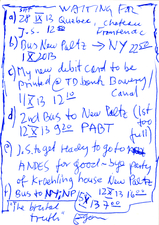 WAITING FOR
a) 28 IX 13 Quebec, chateau
J.S. 12 Frontenac
b) Bus New Paltz → NY 22
1 X 2013
c) My new debit card to be
printed @ TD bank Bowery/
11 X 13 12 Canal
d) 2nd Bus to New Paltz (1st
12 X 13 9 PABT too full)
e) J.S. to get ready to go to
ANDES for good ~ 5yo party
of Kraehling house New Paltz
f) Bus to NY; NP 12 X 13 16
"The brutal 13 X 13 7
truth"